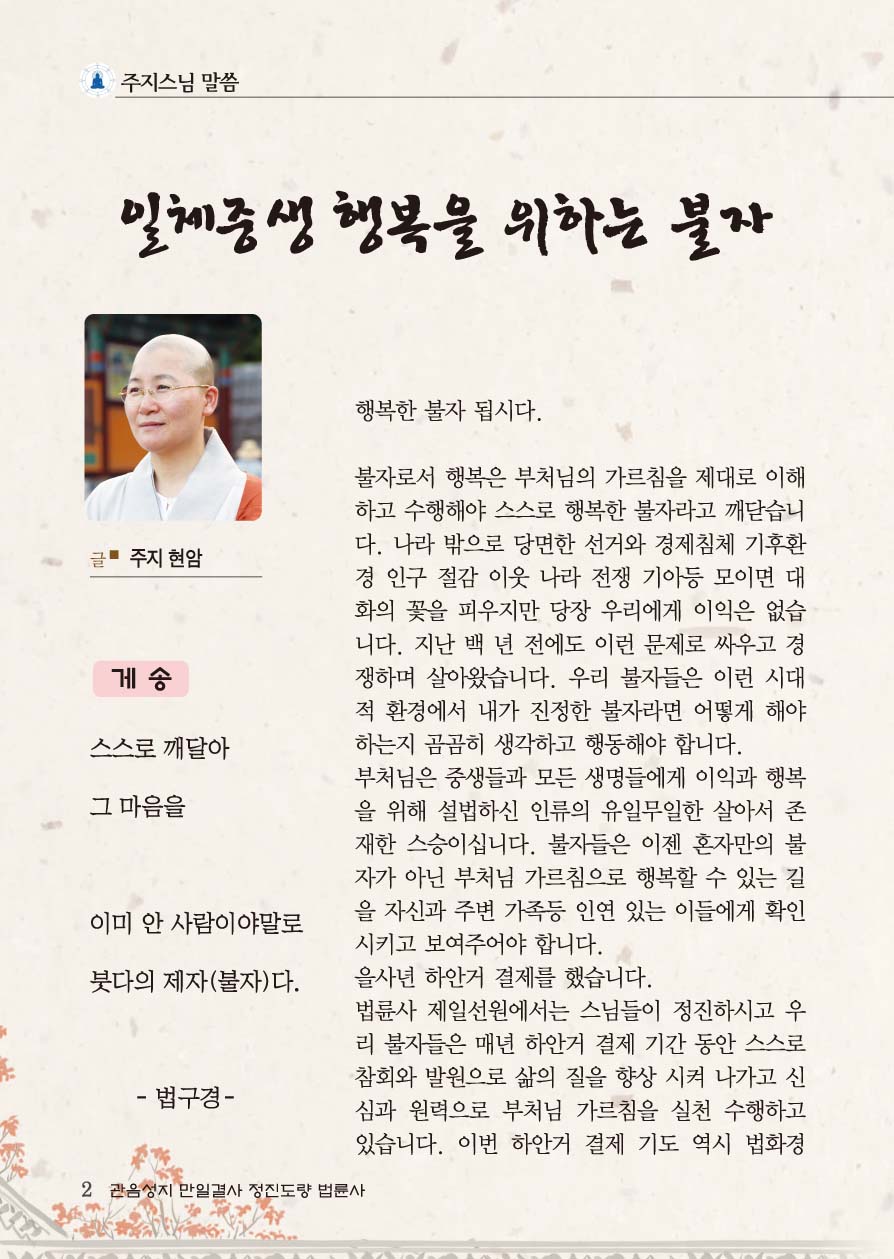 주지스님 말씀
일체중생 행복을 위하는 불자
글 주지 현암
게 송
스스로 깨달아
그 마음을
이미 안 사람이야말로
붓다의 제자(불자)다.
- 법구경-
행복한 불자 됩시다.
불자로서 행복은 부처님의 가르침을 제대로 이해
하고 수행해야 스스로 행복한 불자라고 깨닫습니
다. 나라 밖으로 당면한 선거와 경제침체 기후환
경 인구 절감 이웃 나라 전쟁 기아등 모이면 대
화의 꽃을 피우지만 당장 우리에게 이익은 없습
니다. 지난 백 년 전에도 이런 문제로 싸우고 경
쟁하며 살아왔습니다. 우리 불자들은 이런 시대
적 환경에서 내가 진정한 불자라면 어떻게 해야
하는지 곰곰히 생각하고 행동해야 합니다.
부처님은 중생들과 모든 생명들에게 이익과 행복
을 위해 설법하신 인류의 유일무일한 살아서 존
재한 스승이십니다. 불자들은 이젠 혼자만의 불
자가 아닌 부처님 가르침으로 행복할 수 있는 길
을 자신과 주변 가족등 인연 있는 이들에게 확인
시키고 보여주어야 합니다.
을사년 하안거 결제를 했습니다.
법륜사 제일선원에서는 스님들이 정진하시고 우
리 불자들은 매년 하안거 결제 기간 동안 스스로
참회와 발원으로 삶의 질을 향상 시켜 나가고 신
심과 원력으로 부처님 가르침을 실천 수행하고
있습니다. 이번 하안거 결제 기도 역시 법화경
2 관음성지 만일결사 정진도량 법륜사